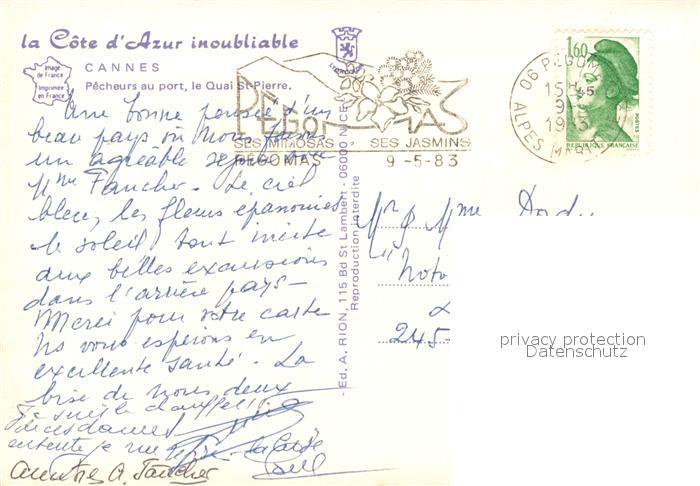 la Côte d'Azur inoubliable
CANNES
Pêcheurs au port, le Quai St-Pierre.
Image
de France
Imprimée
en France
PEGOMAS
SES MIMOSAS SES JASMINS
PEGOMAS 9-5-83
1,60
POSTES
REPUBLIQUE FRANCAISE
06 PEGOMAS
15H45
9-5
1983
ALPES MAR.
Une bonne pensée d'un
beau pays où nous faisons
un agréable séjour avec
Mme Fancher. Le ciel
bleu, les fleurs épanouies
le soleil tout invite
aux belles excursions
dans l'arrière pays-
Merci pour votre carte
Ns vous espérons en
excellente santé. La
bise de nous deux
Je suis le chauffeur
de ces dames
entente je me
A. Fancher
Mr & Mme
245-
- Ed. A. RION, 115 Bd St Lambert - 06000 NICE
Reproduction interdite
privacy protection
Datenschutz